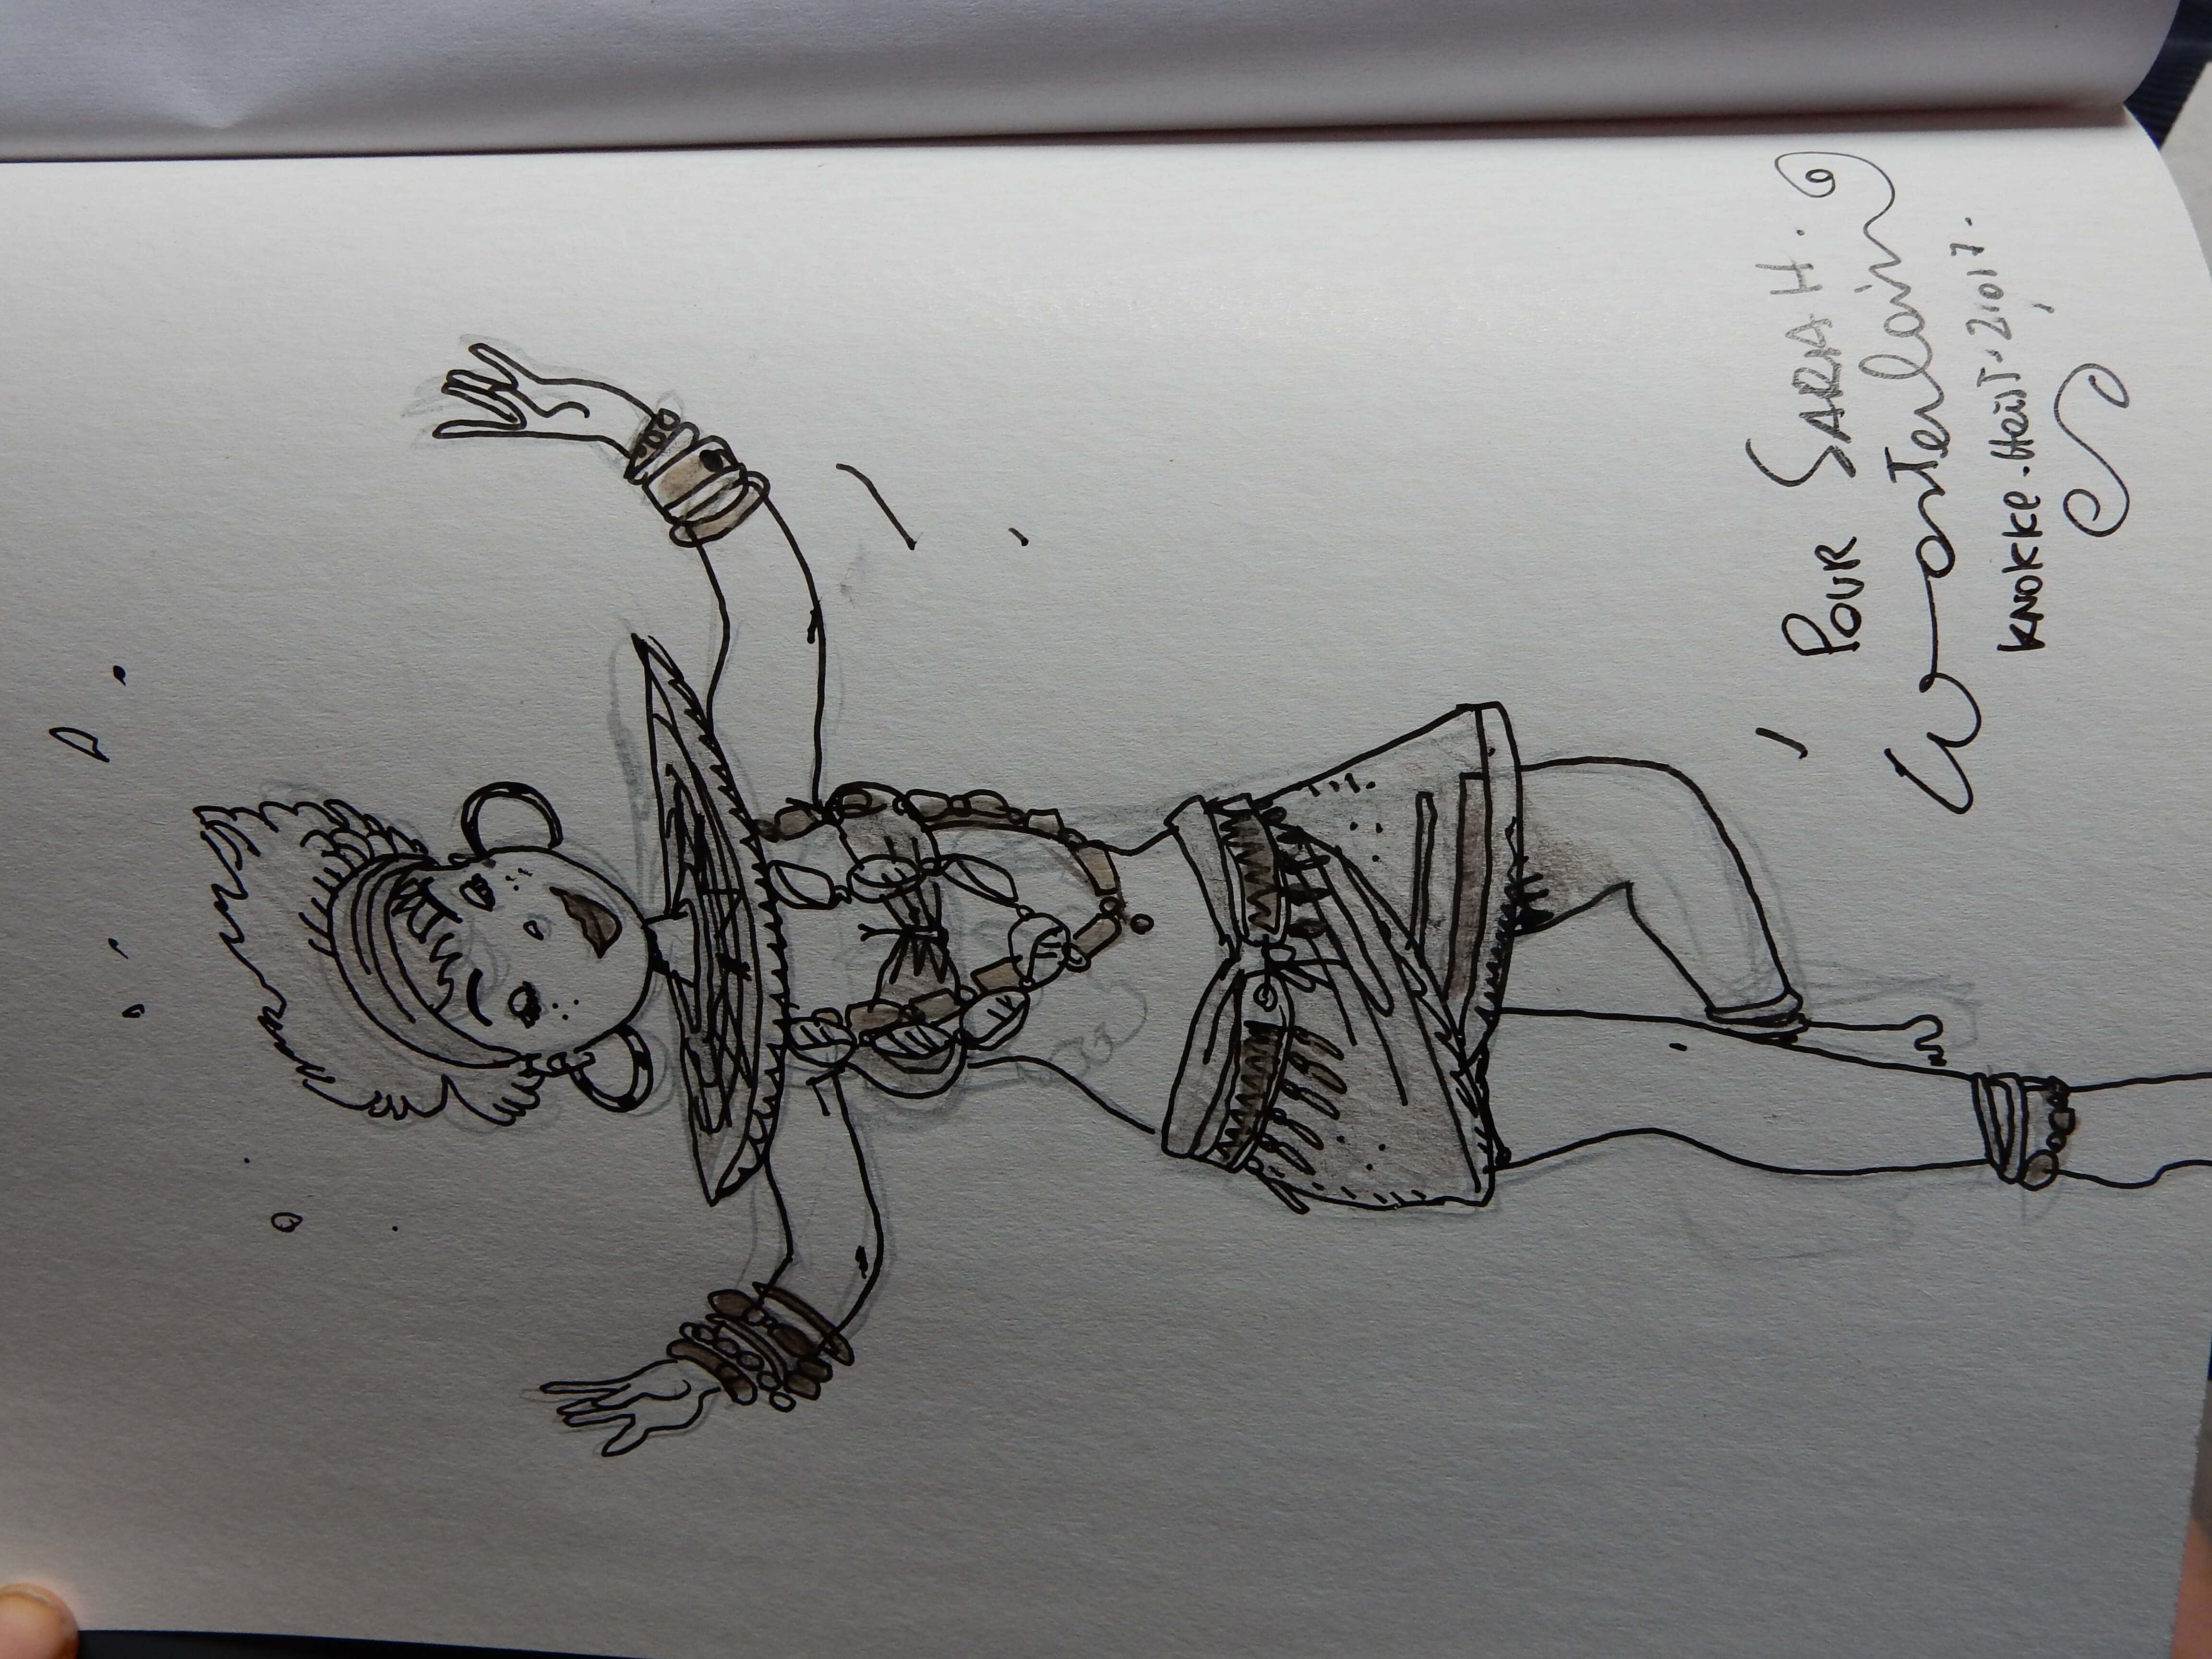 POUR SARAH.
Wasterlain
KNOKKE.HeisT-2017.